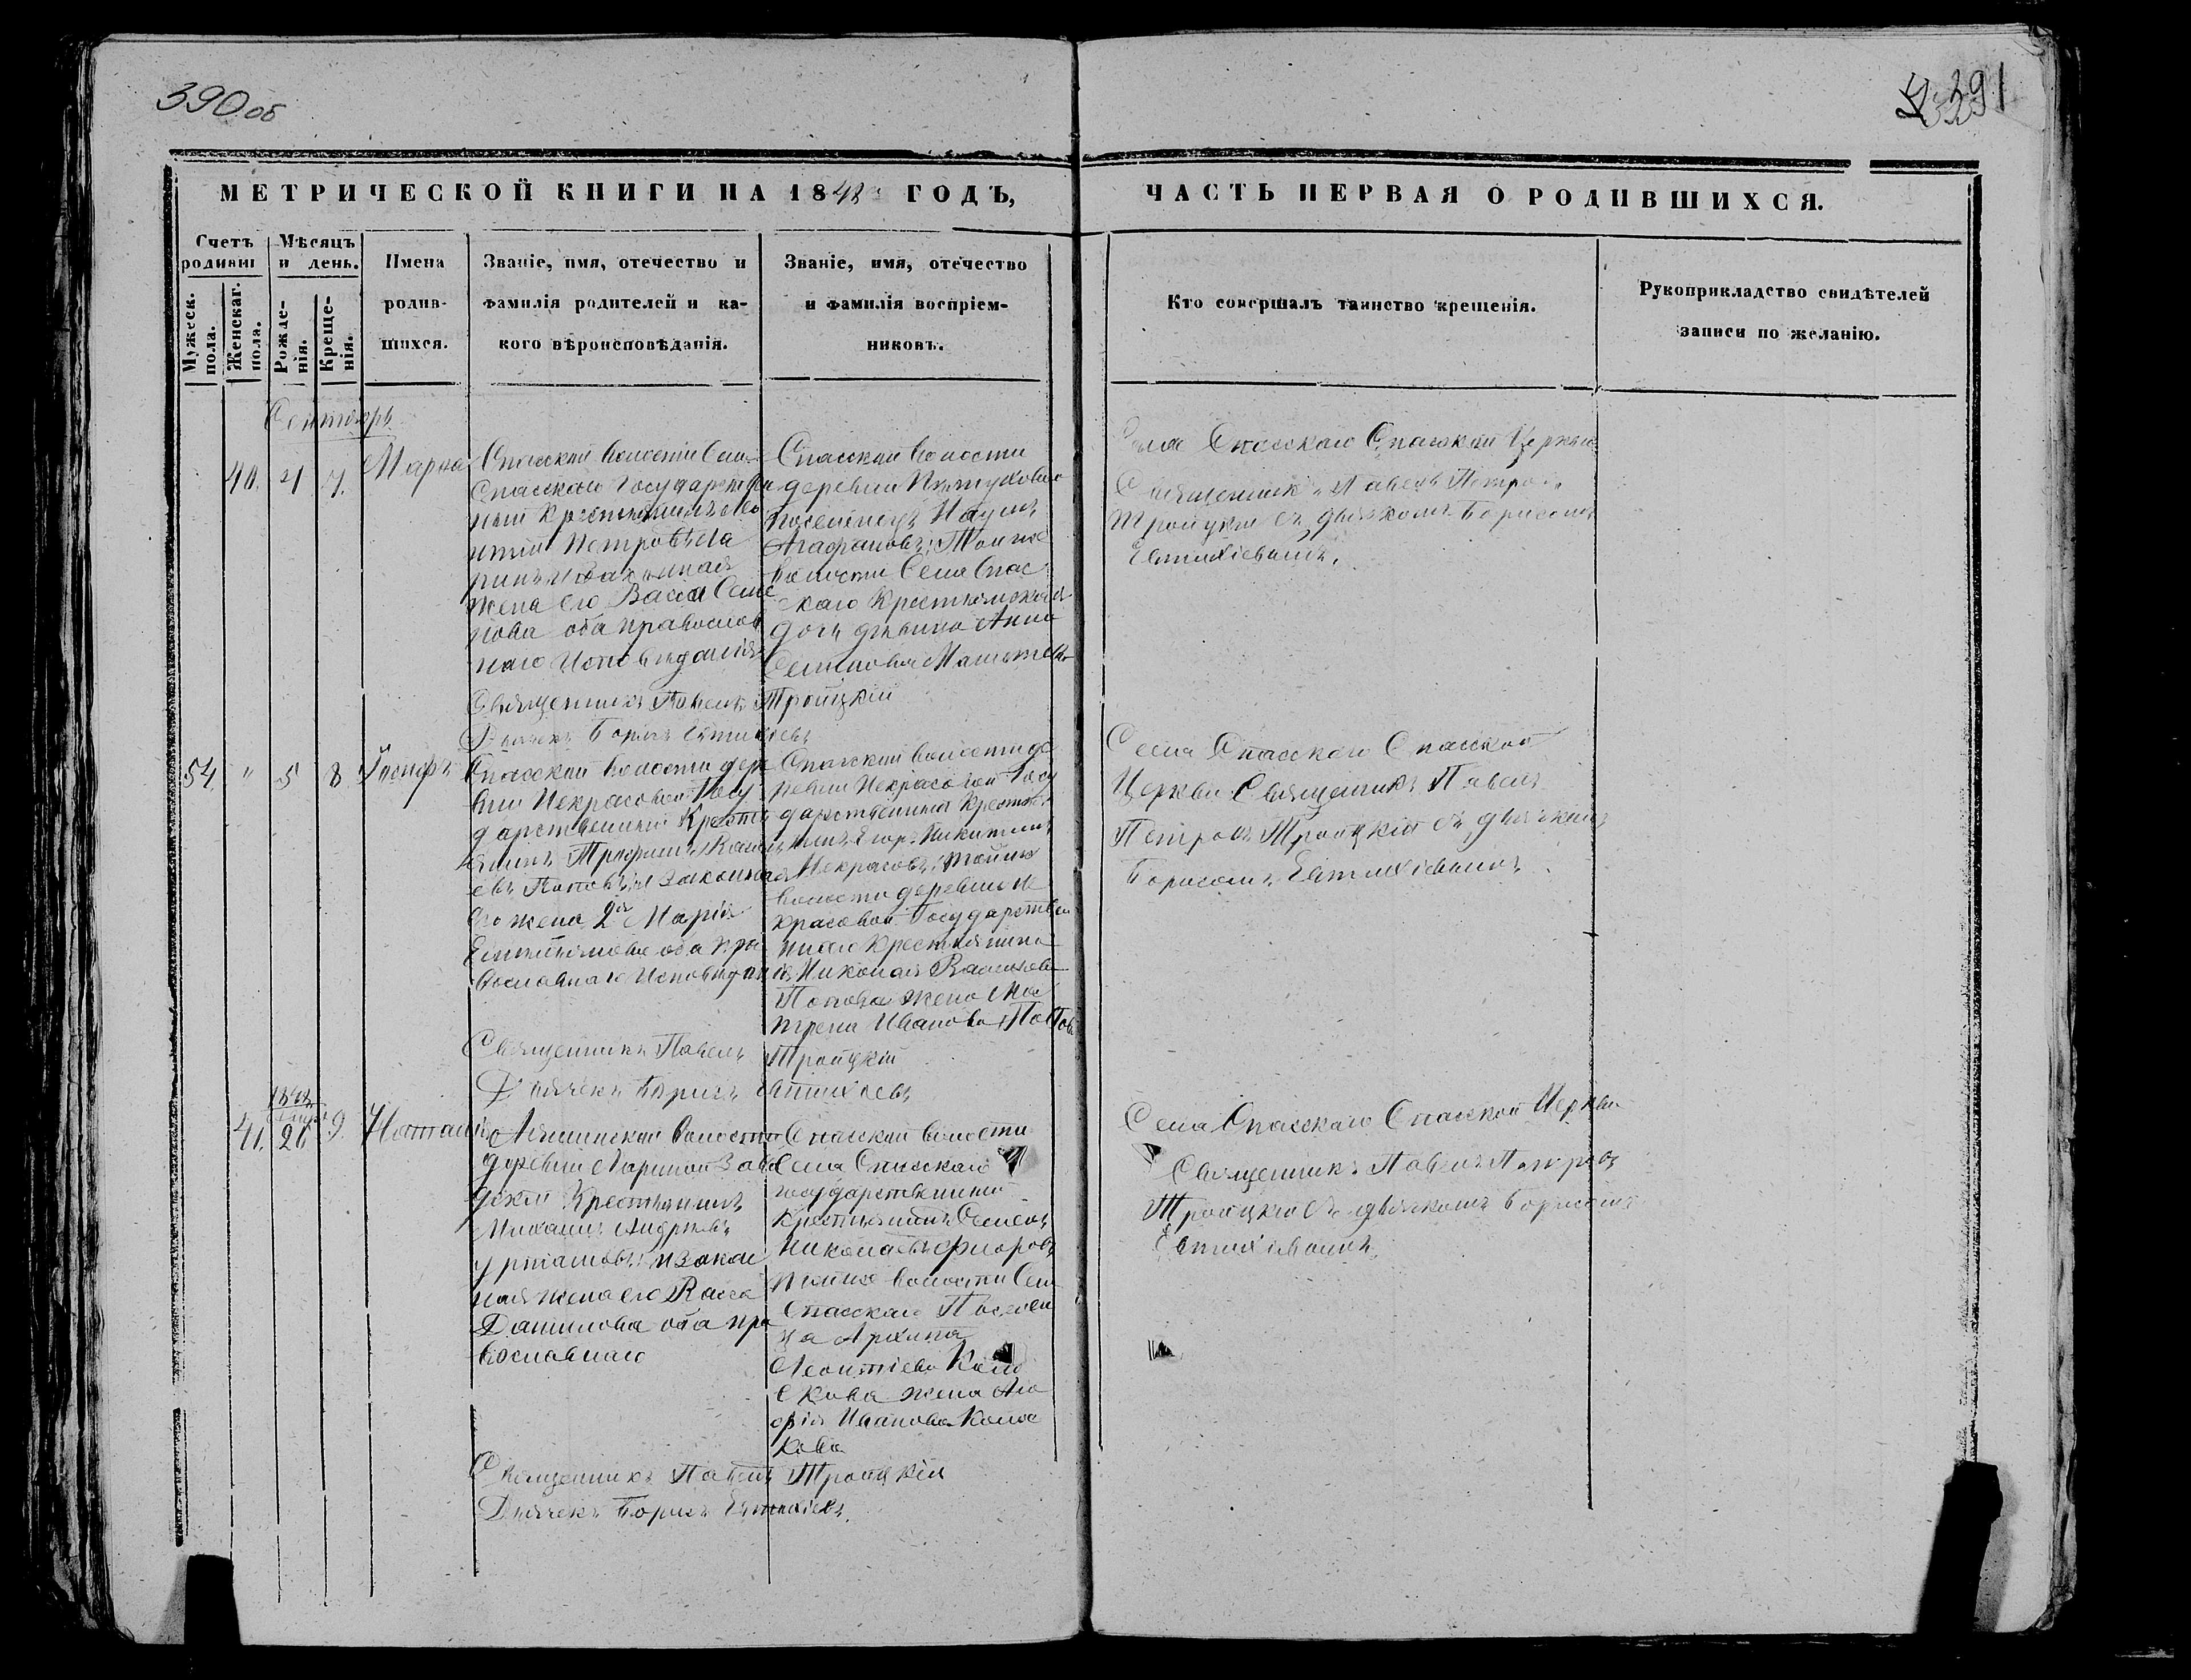 390 об
391
МЕТРИЧЕСКОЙ КНИГИ НА 1848 ГОДЪ,
ЧАСТЬ ПЕРВАЯ О РОДИВШИХСЯ.
Счетъ родивш
Мужеск. пола.
Женскаг. пола.
Мѣсяцъ и день.
Рожде-
нія.
Креще-
нія.
Имена
родив-
шихся.
Званіе, имя, отечество и
фамилія родителей и ка-
кого вѣроисповѣданія.
Званіе, имя, отечество
и фамилія воспріем-
никовъ.
Кто совершалъ таинство крещенія.
Рукоприкладство свидѣтелей
записи по желанію.
Сентябрь
40. 4 7.
Спасской волости Села
Спасскаго Государствен
ный Крестьянинъ Ле
онтій Петровъ Ла
ринъ и законная
жена его Васса Семе
нова оба православ
наго Исповѣданія
Спасской волости
деревни
поселенецъ Наумъ
Агафоновъ; Той же
волости Села Спас
скаго Крестьянская
дочь дѣвица Анна
Семенова
Села Спасскаго Спасской Церкви
Священникъ Павелъ Петровъ
Троицкій съ дьячкомъ Борисомъ
Евтихіевымъ.
Священникъ Павелъ Троицкій
Дьячекъ Борисъ Евтихіевъ
54. " 5 8 Іосифъ
Спасской волости дере
вни Некрасовой Госу
дарственный Кресть
янинъ Трифонъ Василь
евъ Поповъ и законная
его жена 2я Марія
оба пра
вославнаго Исповѣданія
Спасской волости де
ревни Некрасовой Госу
дарственный Кресть
янинъ Егоръ Никитинъ
Некрасовъ; той же
волости деревни Не
красовой Государствен
наго Крестьянина
Николая Васильева
Попова жена Ма
трена Иванова Попова
Села Спасскаго Спасской
Церкви Священникъ Павелъ
Петровъ Троицкій съ дьячкомъ
Борисомъ Евтихіевымъ
Священникъ Павелъ Троицкій
Дьячекъ Борисъ Евтихіевъ
41. 26 9. Наталія
волости
деревни Лариной Заво
дскій Крестьянинъ
Михаилъ Андреевъ
и закон
ная жена его Васса
Данилова оба пра
вославнаго
Спасской волости
Села Спасскаго
государственный
Крестьянинъ Семенъ
Николаевъ Флоровъ
той же волости Села
Спасскаго Поселен
ца Архипа
Леонтіева
жена Ма
рія Иванова
Села Спасскаго Спасской Церкви
Священникъ Павелъ Петровъ
Троицкій съ дьячкомъ Борисомъ
Евтихіевымъ.
Священникъ Павелъ Троицкій
Дьячекъ Борисъ Евтихіевъ.